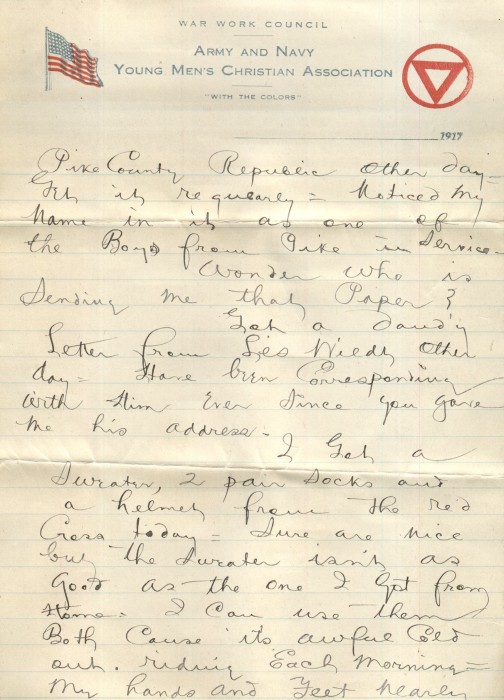 WAR WORK COUNCIL
ARMY AND NAVY
YOUNG MEN'S CHRISTIAN ASSOCIATION
"WITH THE COLORS"
1917
Pike County Republic other day =
Get it regularly = Noticed my
Name in it as one of
the Boys from Pike in Service -
Wonder who is
Sending me that Paper?
Got a dandy
Letter from Les other
day = Have been Corresponding
With Him Ever Since you gave
me his address -
I Got a
Sweater, 2 pair Socks and
a helmet from the red
Cross today = Sure are nice
but the Sweater isn't as
Good as the one I Got from
Home = I Can use them
Both Cause its awful Cold
out riding Each Morning =
My hands and Feet nearly